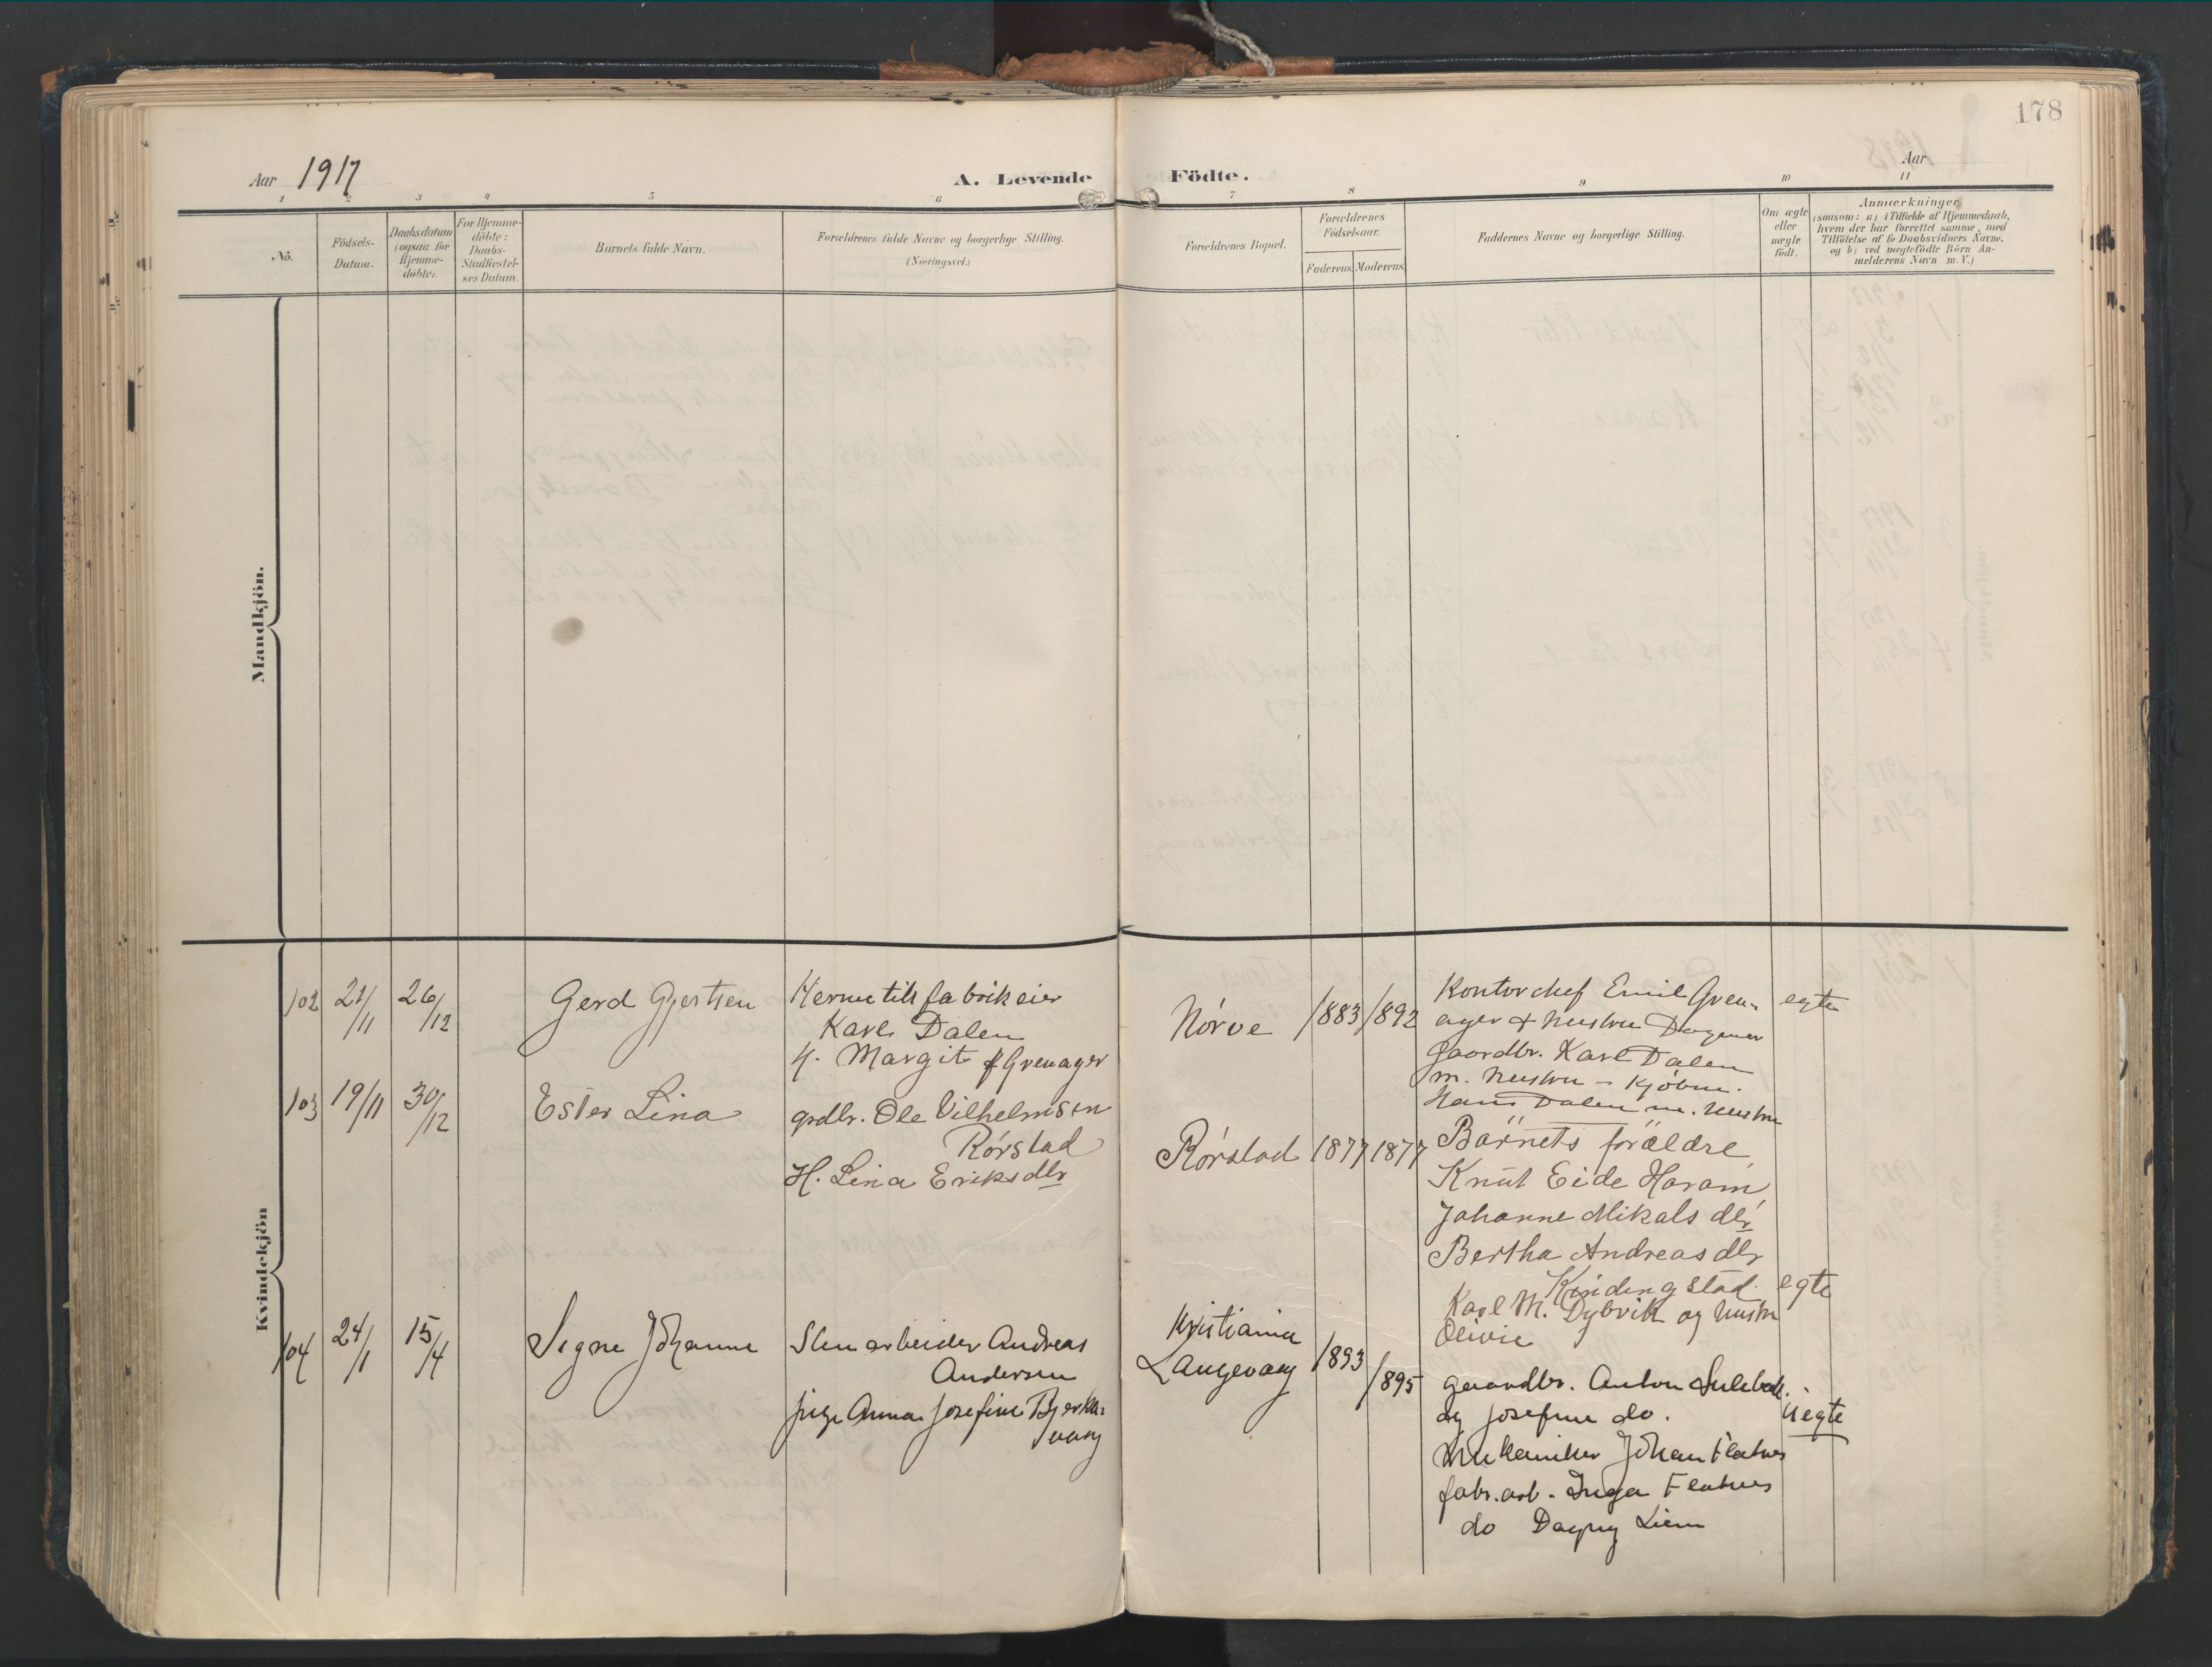 178
Aar 1917
A. Levende Födte.
Aar
1 2 3 4 5 6 7 8 9 10 11
No.
Födsels-
Datum.
Daabsdatum
(ogsaa for
Hjemme-
döbte).
For Hjemme-
döbte:
Daabs-
Stadfæstel-
ses Datum.
Barnets fulde Navn.
Forældrenes fulde Navne og borgerlige Stilling.
(Næringsvei.)
Forældrenes Bopæl.
Forældrenes
Födselsaar.
Faderens. Moderens.
Faddernes Navne og borgerlige Stilling.
Om ægte
eller
uægte
födt.
Anmærkninger
(saasom: a) i Tilfælde af Hjemmedaab,
hvem der har forrettet samme, med
Tilföielse af to Daabsvidners Navne,
og b) ved uægtefödte Börn An-
melderens Navn m. V.)
Mandkjön.
Kvindekjön
102 21/11 26/12
Gerd Gjertsen
Hermetikfabrikeier
Karl Dalen
H. Margit f Grenager
Nörve
1883 1892
Kontorchef Emil Gren-
ager & hustru Dagmar
Gaardbr. Karl Dalen
m. hustru - Kjöbm.
Hans Dalen m. hustru
egte
103 19/11 30/12
Ester Lina
grdbr. Ole Vilhelmsen
Rörstad
H. Lina Eriksdtr
Rörstad
1877 1877
Barnets forældre,
Knut Eide Haram,
Johanne Mikalsdtr,
Bertha Andreasdtr
Kindingstad
egte
Karl M. Dybvik og hustru
Olivie
104 24/1 15/4
Signe Johanne
Stenarbeider Andreas
Andersen
pige Anna Josefine Bjerka-
vaag
Kristiania
Langevaag
1893
1895
gaardbr. Anton Sulebak
og Josefine do.
Mekaniker Johan Flatnes
fabr.arb. Inga Flatnes
do Dagny Liem
uegte